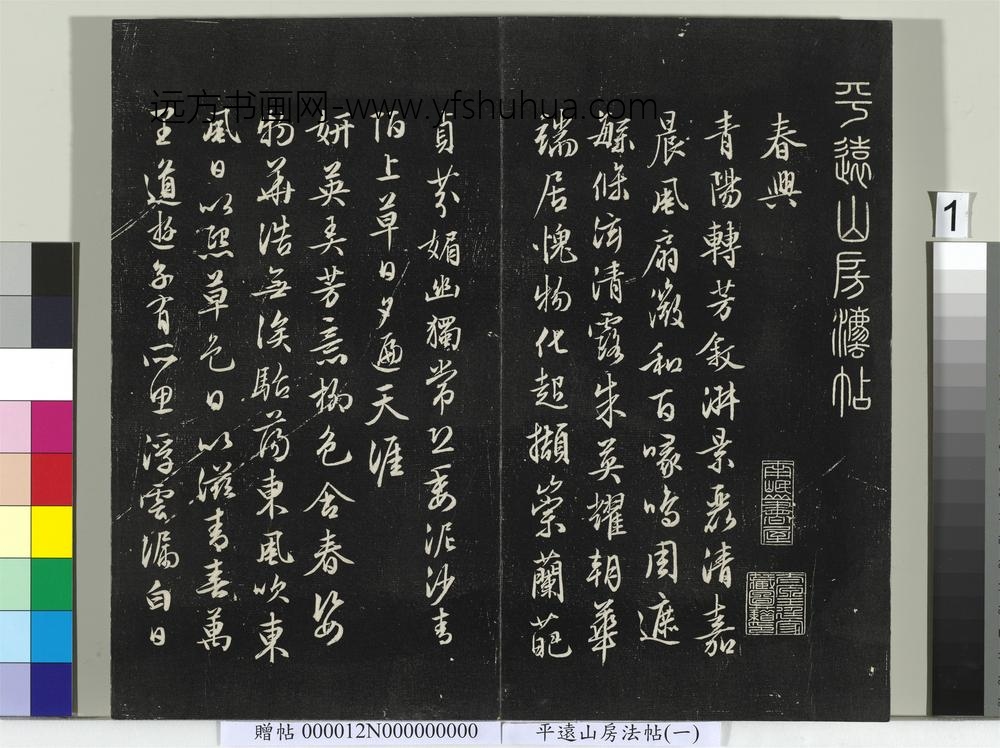 平遠山房灋帖
春興
青陽轉芳叙淑景清嘉
晨風扇微和百喙鳴周遮
條泫清露朱英耀朝華
端居愧物化起擷崇蘭葩
貞芬媚幽獨常恐委泥沙青
陌上草日夕遍天涯
妍英弄芳意柳色含春姿
物華浩無涘駘蕩東風吹東
風日以熙草色日以滋青春萬
里道遊子有所思浮雲漏白日
远方书画网-www.yfshuhua.com
1
贈帖 000012N000000000
平遠山房法帖(一)